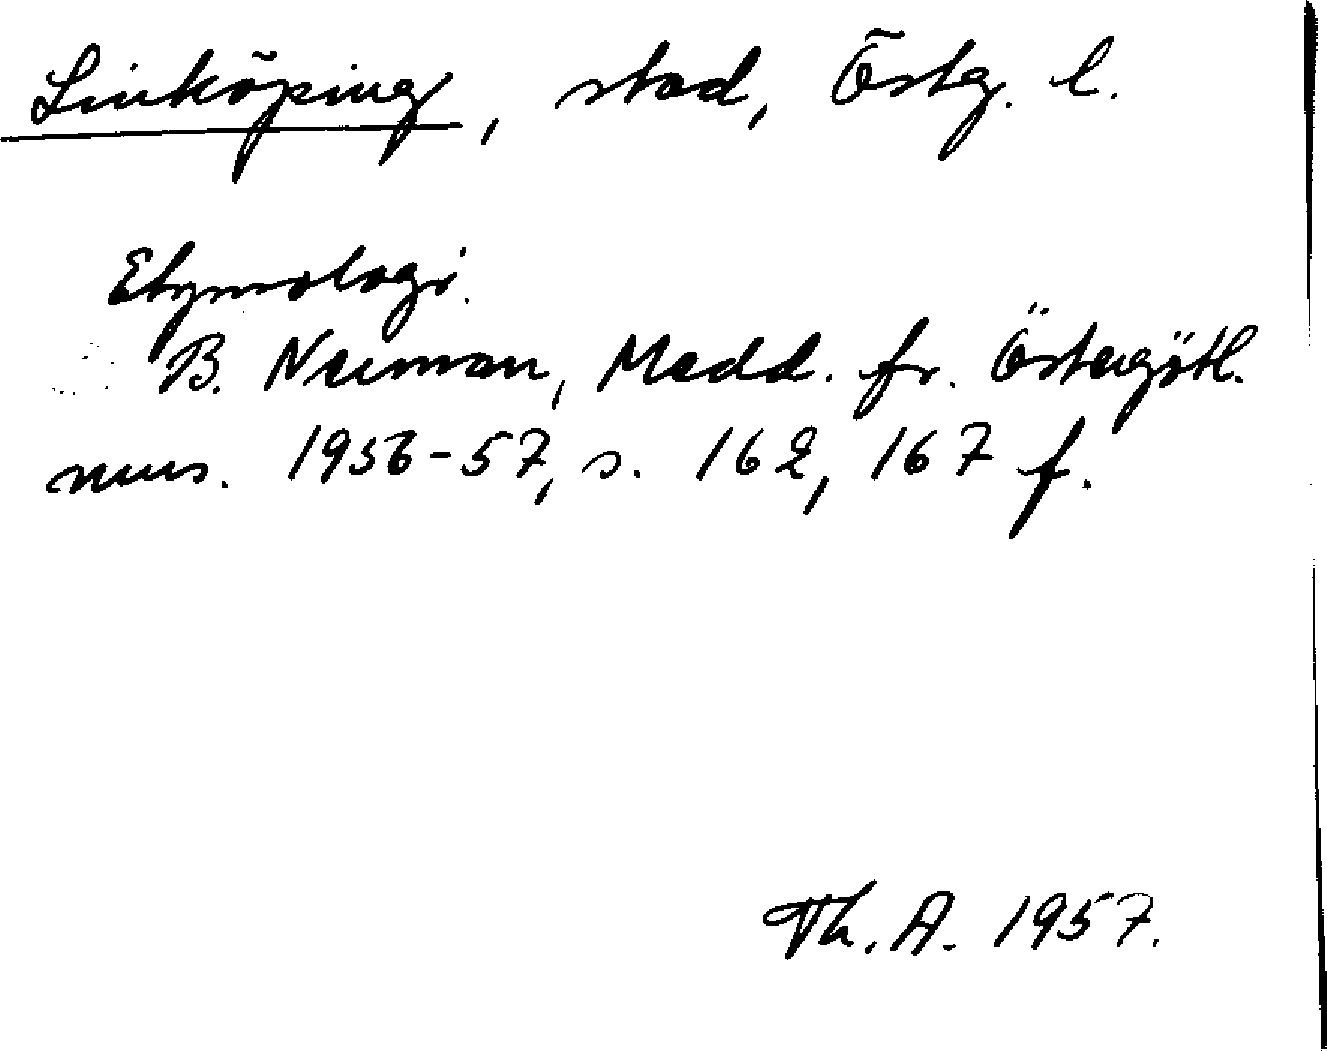 Linköping, stad, Östg. l.
Etymologi.
B. Neuman, Medd. fr. Östergötl.
mus. 1956-57, s. 162, 167 f.
Th. A. 1957.